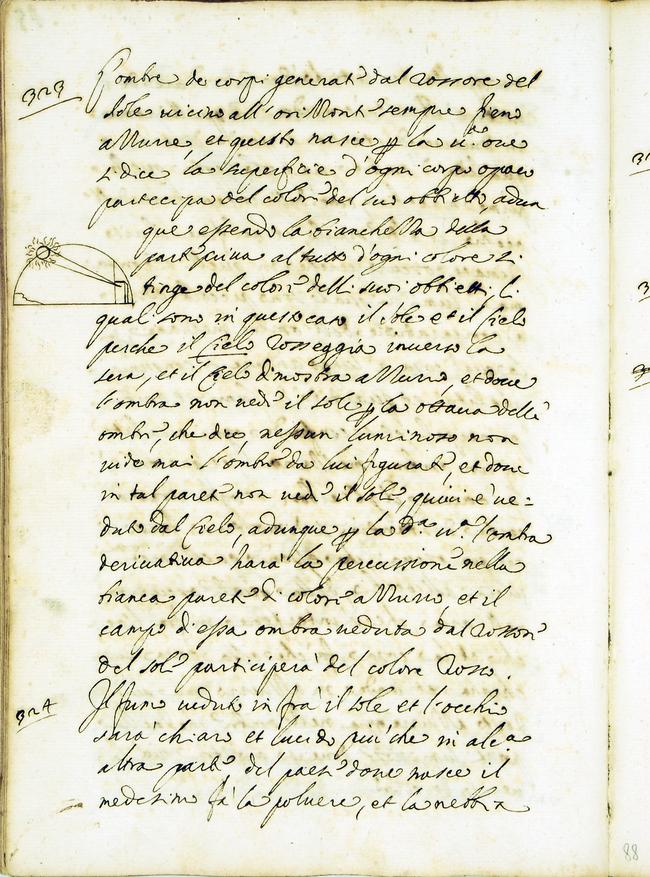 323
L'ombre de corpi generate dal rossore del
sole vicino all'orizzonte sempre fieno
azzurre, et questo nasce p la xi.a ove
si dice la superficie d'ogni corpo opaco
partecipa del colore del suo obbietto, adun
que essendo la bianchezza della
parete priva al tutto d'ogni colore si
tinge del colore delli suoi obbietti, li
quali sono in questo caso il sole et il cielo
perche il cielo rosseggia inverso la
sera, et il cielo dimostra azzurro, et dove
l'ombra non vede il sole p la ottava delle
ombre, che dice, nessun luminoso non
vide mai l'ombre da lui figurate, et dove
in tal parete non vede il sole, quivi è ve=
duto dal cielo, adunque p la d.a xi.a l'ombra
derivativa harà la percussione nella
bianca parete di colore azzurro, et il
campo d'essa ombra veduta dal rossore
del sole participerà del colore rosso.
324
Il fumo veduto infrà il sole et l'occhio
sarà chiaro et lucido più che in alc.a
altra parte del paese dove nasce il
medesimo fà la polvere, et la nebbia
88